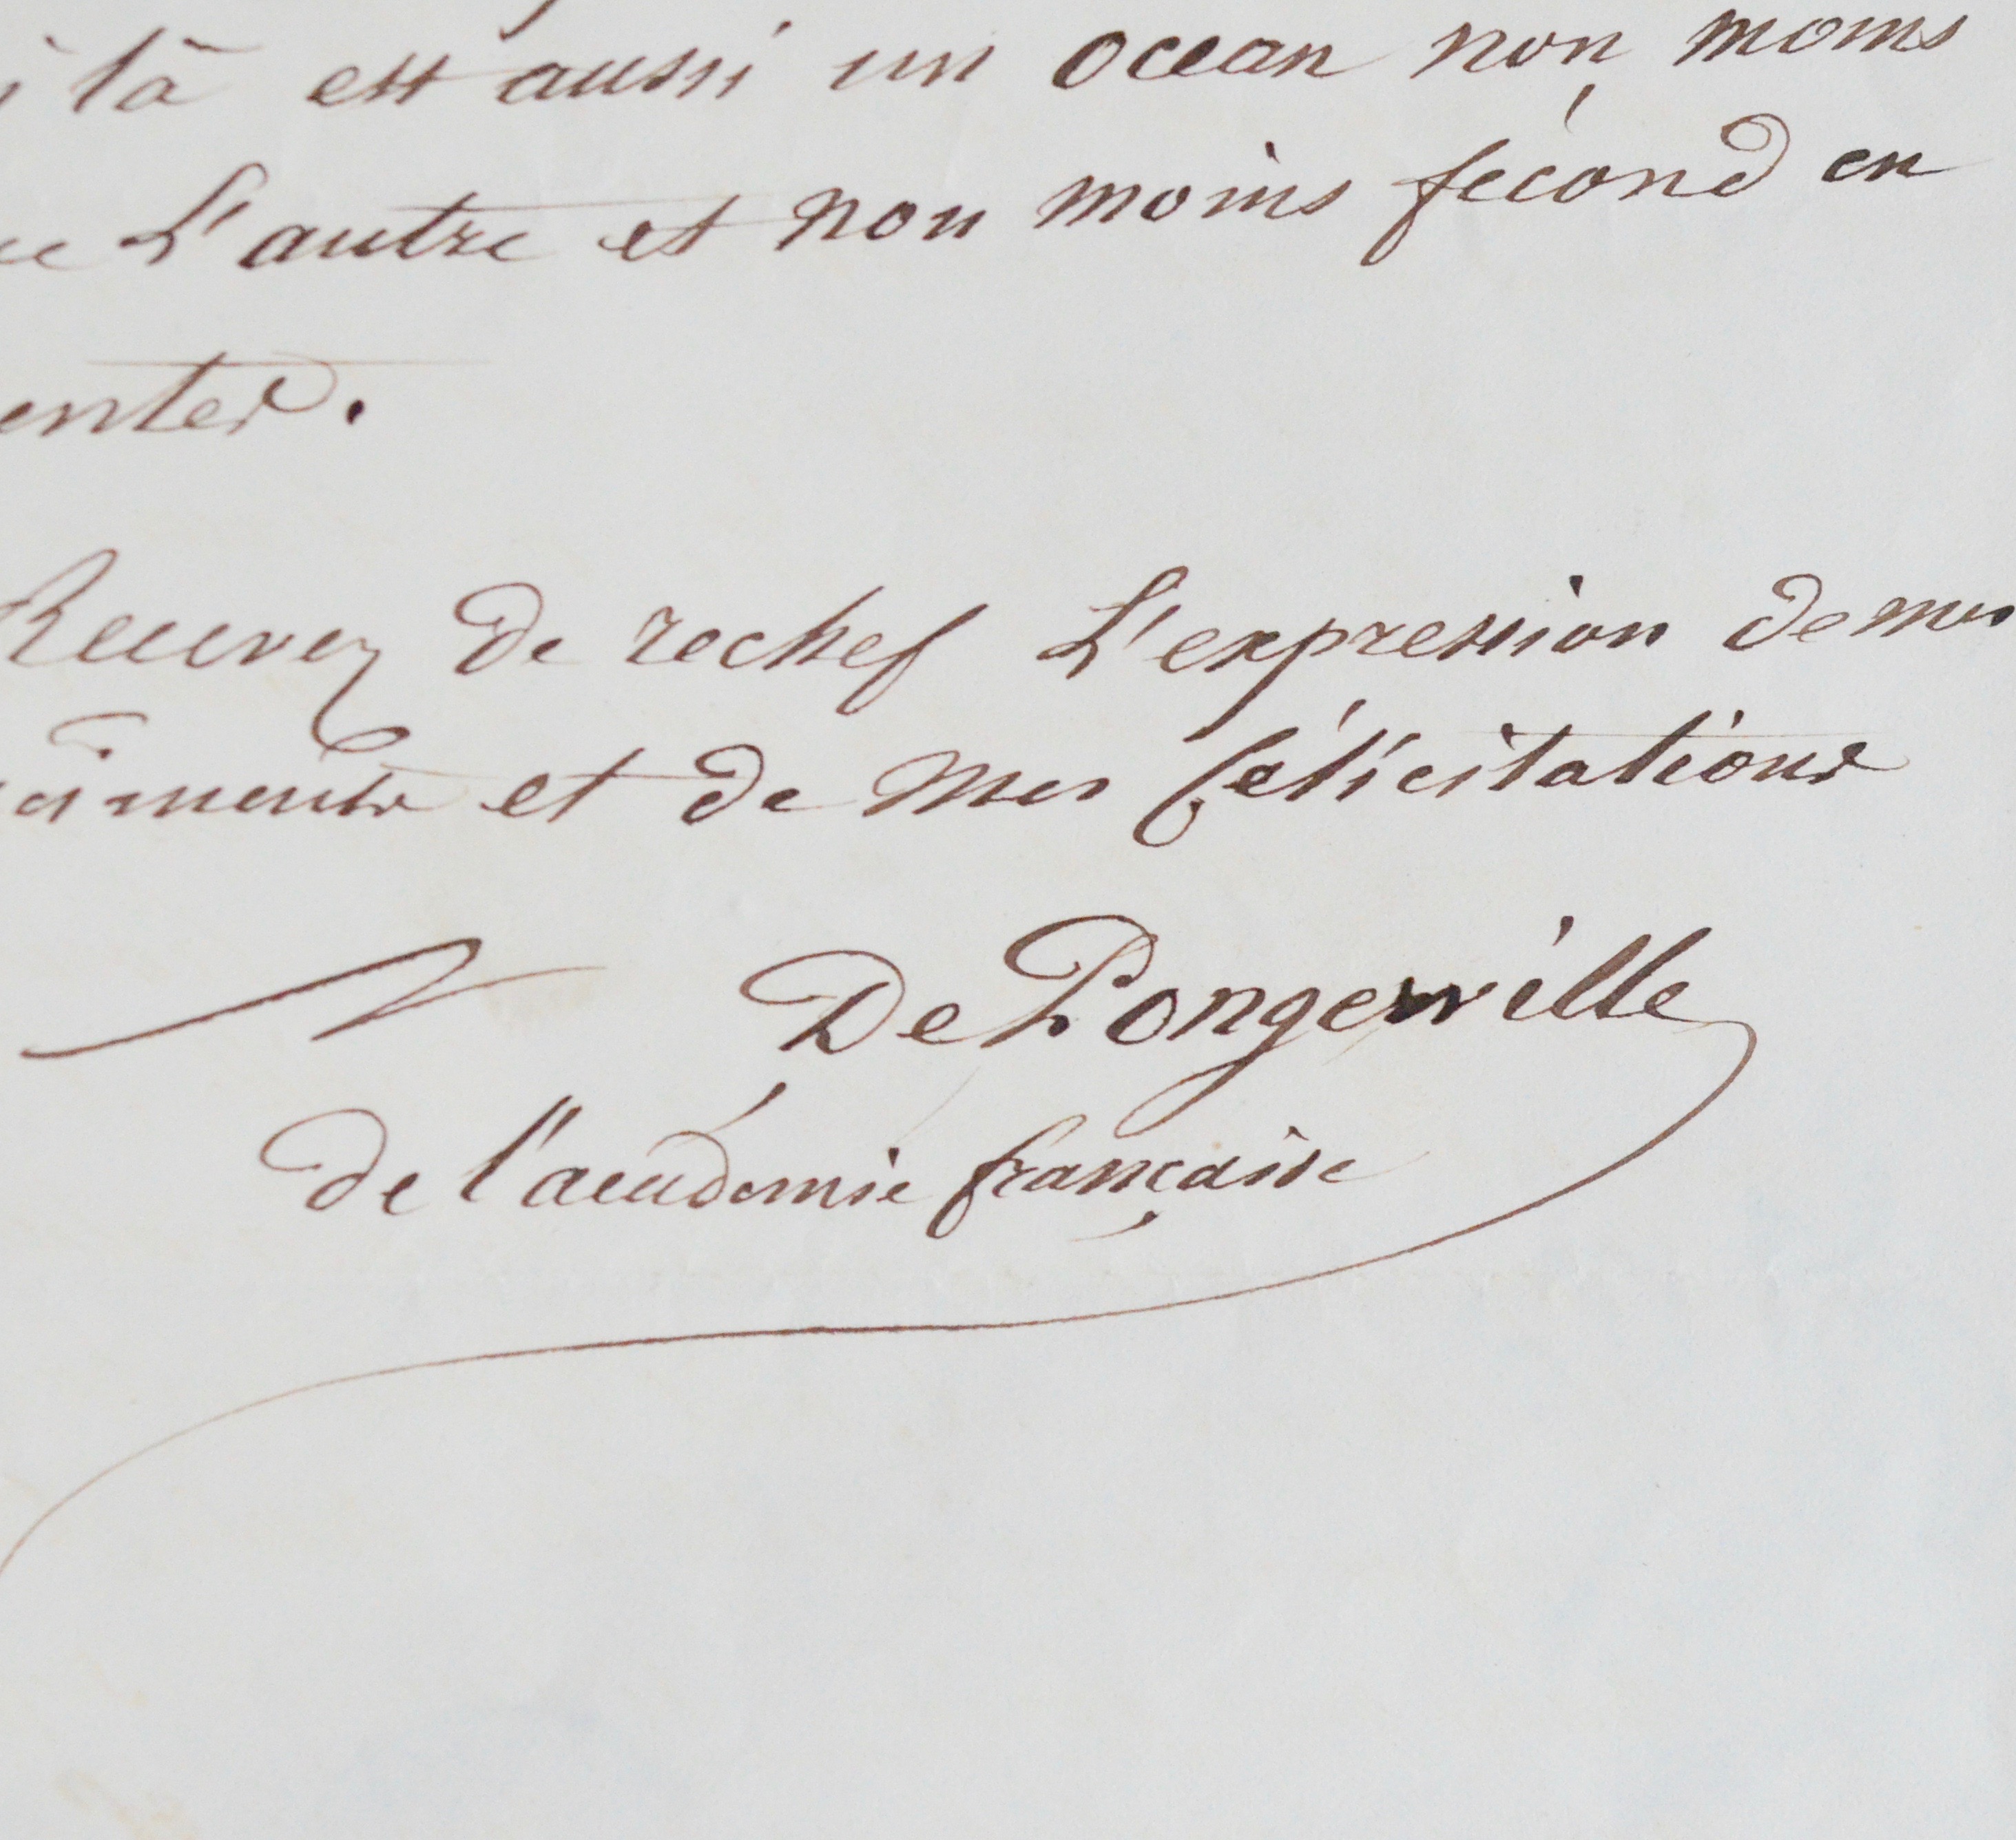 là est aussi un ocean non moins
L'autre et non moins fécond en
enter.
Recevez de rechef L'expression de mes
et de mes félicitations
De Pongerville
de l'académie française